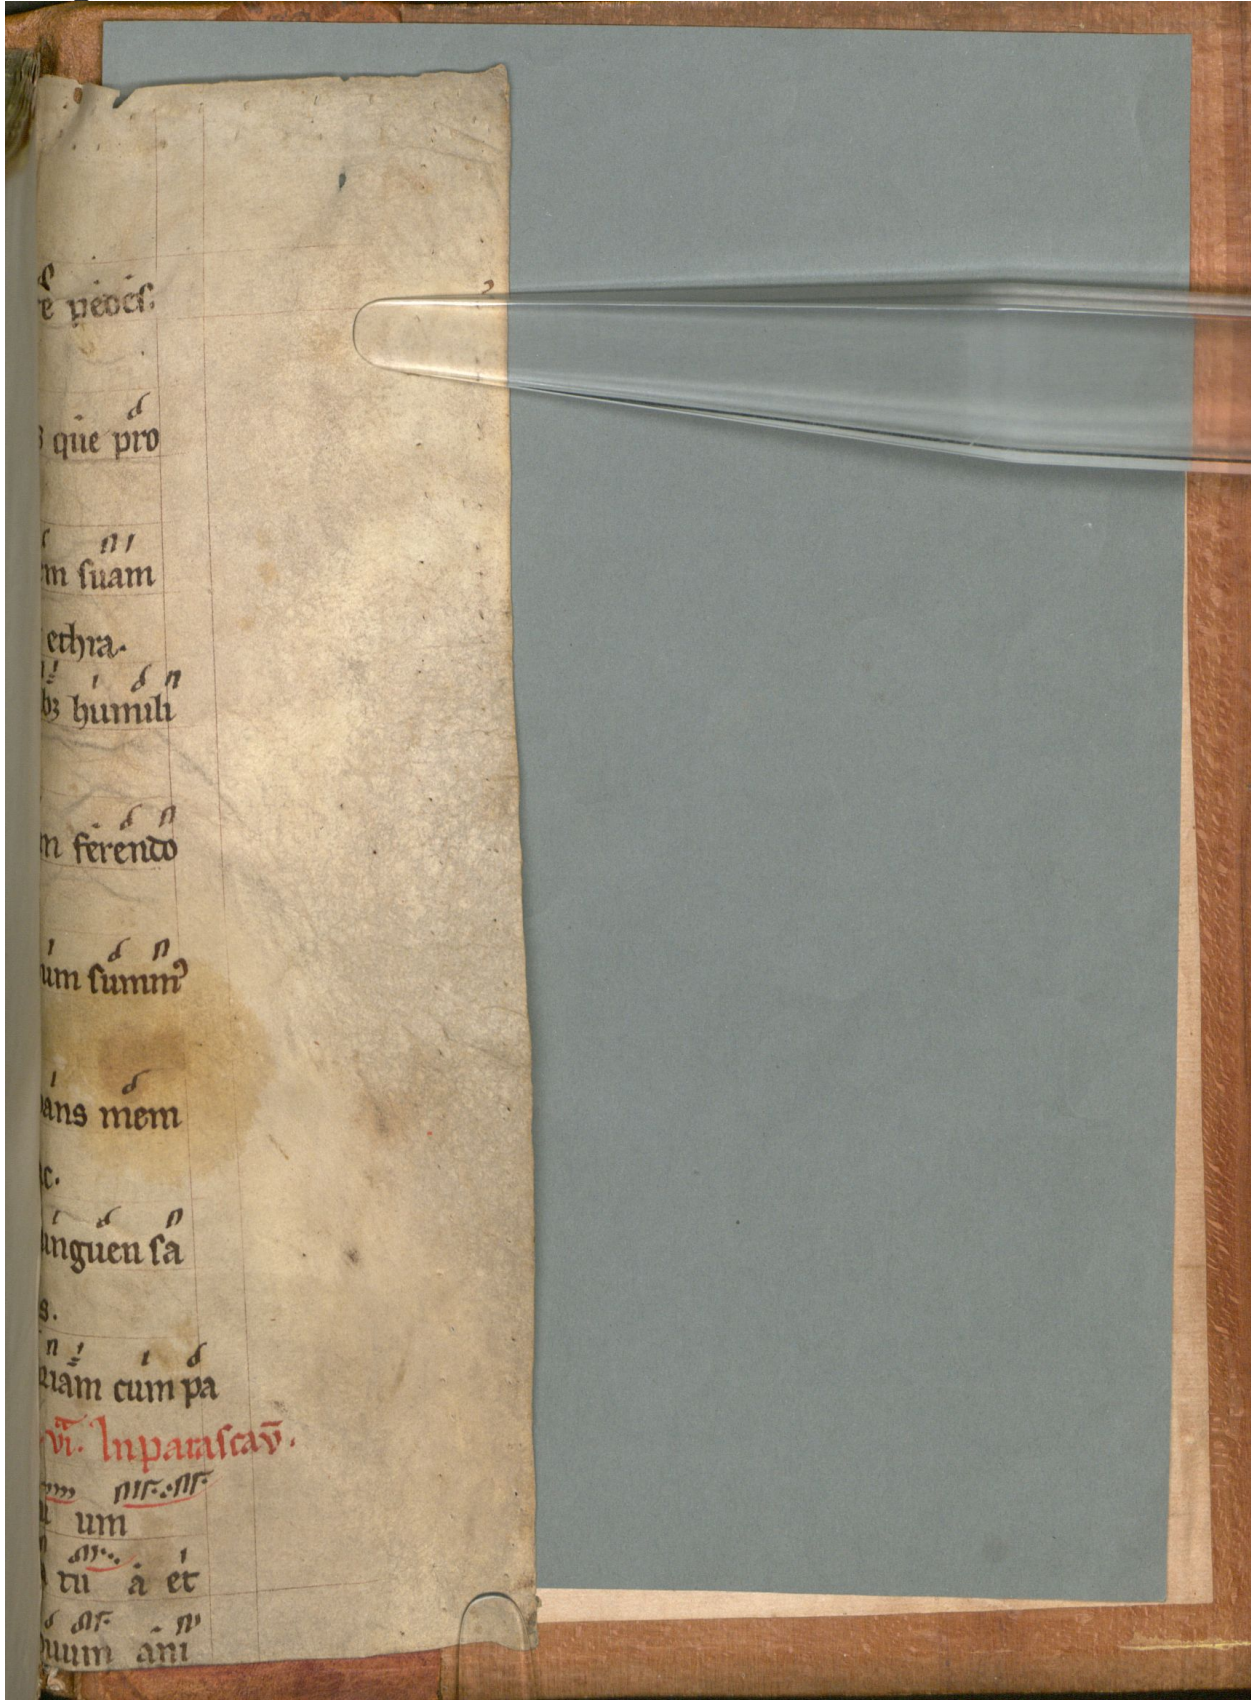 re pedes.
que pro
suam
ethra.
bꝫ humili
ferendo
um summꝰ
ans mem
c.
unguen sa
s.
riam cum pa
vi. In parascaū.
um
tu a et
uum ani